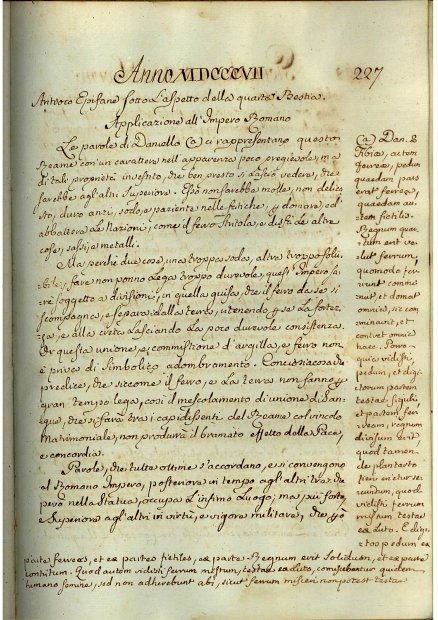 Anno MDCCCVII 227
Antioco Epifane sotto l'aspetto della quarta Bestia.
Applicazione all'Impero Romano
Le parole di Daniello (a) ci rappresentano questo
Reame con un carattere nell'apparenza poco pregievole, ma
di tale proprietà investito, che ben presto si lascò vedere, che
sarebbe agl'altri Superiore. Esso non sarebbe molle, non delica
to, duro anzi, sodo, e paziente nelle fatiche, domare, ed
abbattere le Nazioni, come il ferro stritola, e disfà le altre
cose, sassi, e metalli.
Ma perchè due cose, una troppa soda, altra troppo solu
bile, fare non ponno Lega troppo durevole, quest'Impero sa
rà soggetto a divisioni, in quella guisa, che il ferro da se si
scompagna, e separa dalla terra, ritenendo per se la fortez
za, e alla creta lasciando la poco durevole consistenza.
Or questa unione, e commistione d'argilla, e ferro non
è priva di Simbolico adombramento.
predice, che siccome il ferro, e la terra non fanno
gran tempo lega, così il mescolamento di unione di San
gue, che si farà tra i capi dissenti del Reame col vincolo
Matrimoniale, non produrrà il bramato effetto dalla Pace,
e concordia.
Parole, che tutte ottime s'accordano, e si convengono
al Romano Impero, posteriore in tempo agl'altri tre, che
però nella Statua, occupa l'infimo Luogo; ma più forte,
e Superiore agl'altri in virtù, e vigore militare, che
(a) Dan. 2
Tibiæ, autem
ferreæ, pedum
quædam pars
erat ferrea,
quædam au
tem fictilis.
Regnum quar
tum erit ve
lut ferrum,
quomodo fer
rum commi
nuit, et domat
omnia, sic com
minuet, et
conteret omnia
hæc. Porro
quia vidisti
pedum, et digi
torum partem
testæ figuli
et partem fer
ream; regnum
divisum erit
quod tamen
de plantario
ferri orietur se
cundum, quod
vidisti ferrum
mistum testæ
ex luto. E digi
tos pedum ex
parte ferreos, et ex parte fictiles, ex parte Regnum erit Solidum, et ex parte
contritum. Quod autem vidisti ferrum mistum, testæ ex luto, commiscebuntur quidem
humano semine, sed non adhærebunt sibi, sicut ferrum misceri non potest testæ